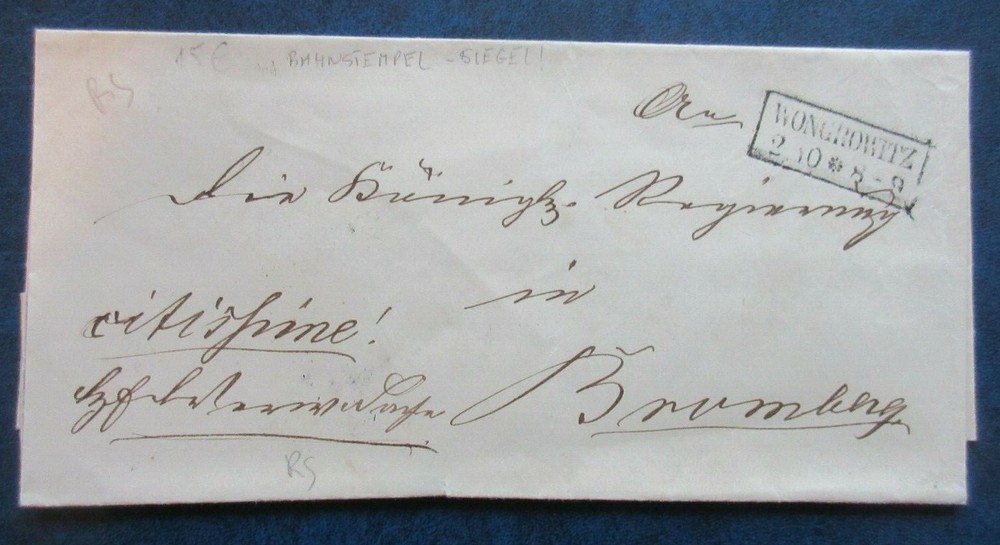 15 € BAHNSTEMPEL - SIEGEL!
RS
An
WONGROWITZ
2 10 * 8-9
Die Königl. Regierung
in
citissime!
Bromberg
RS